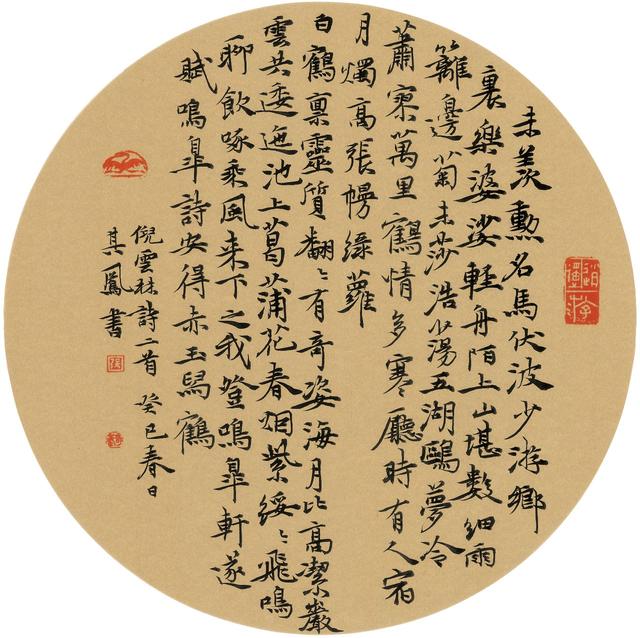 未羨勳名馬伏波少游鄉
裏樂婆娑輕舟陌上山堪數細雨
籬邊菊未莎浩蕩五湖鷗夢冷
蕭寥萬里鶴情多寒廳時有人宿
月燭高張幔綠蘿
白鶴稟靈質翩〻有奇姿海月比高潔巖
雲共逶迤池上菖蒲花春烟紫綏〻飛鳴
聊飲啄乘風来下之我登鳴皐軒遂
賦鳴皐詩安得赤玉舄鶴
倪雲林詩二首 癸巳春日
其鳳書